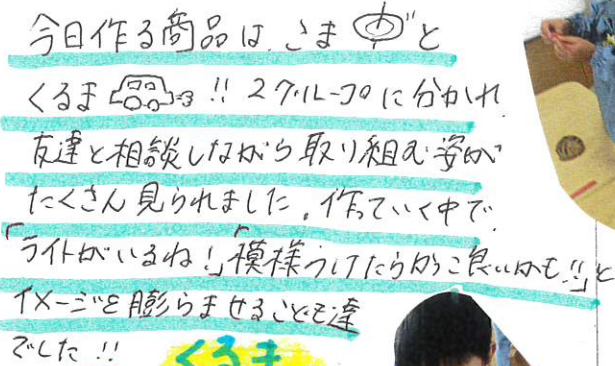 今日作る商品は、こまと
くるま!! 2グループに分かれ
友達と相談しながら取り組む姿が
たくさん見られました。作っていく中で
「ライトがいるね!」「模様つけたらかっこ良いかも!!」と
イメージを膨らませるこども達
でした!!
くるま